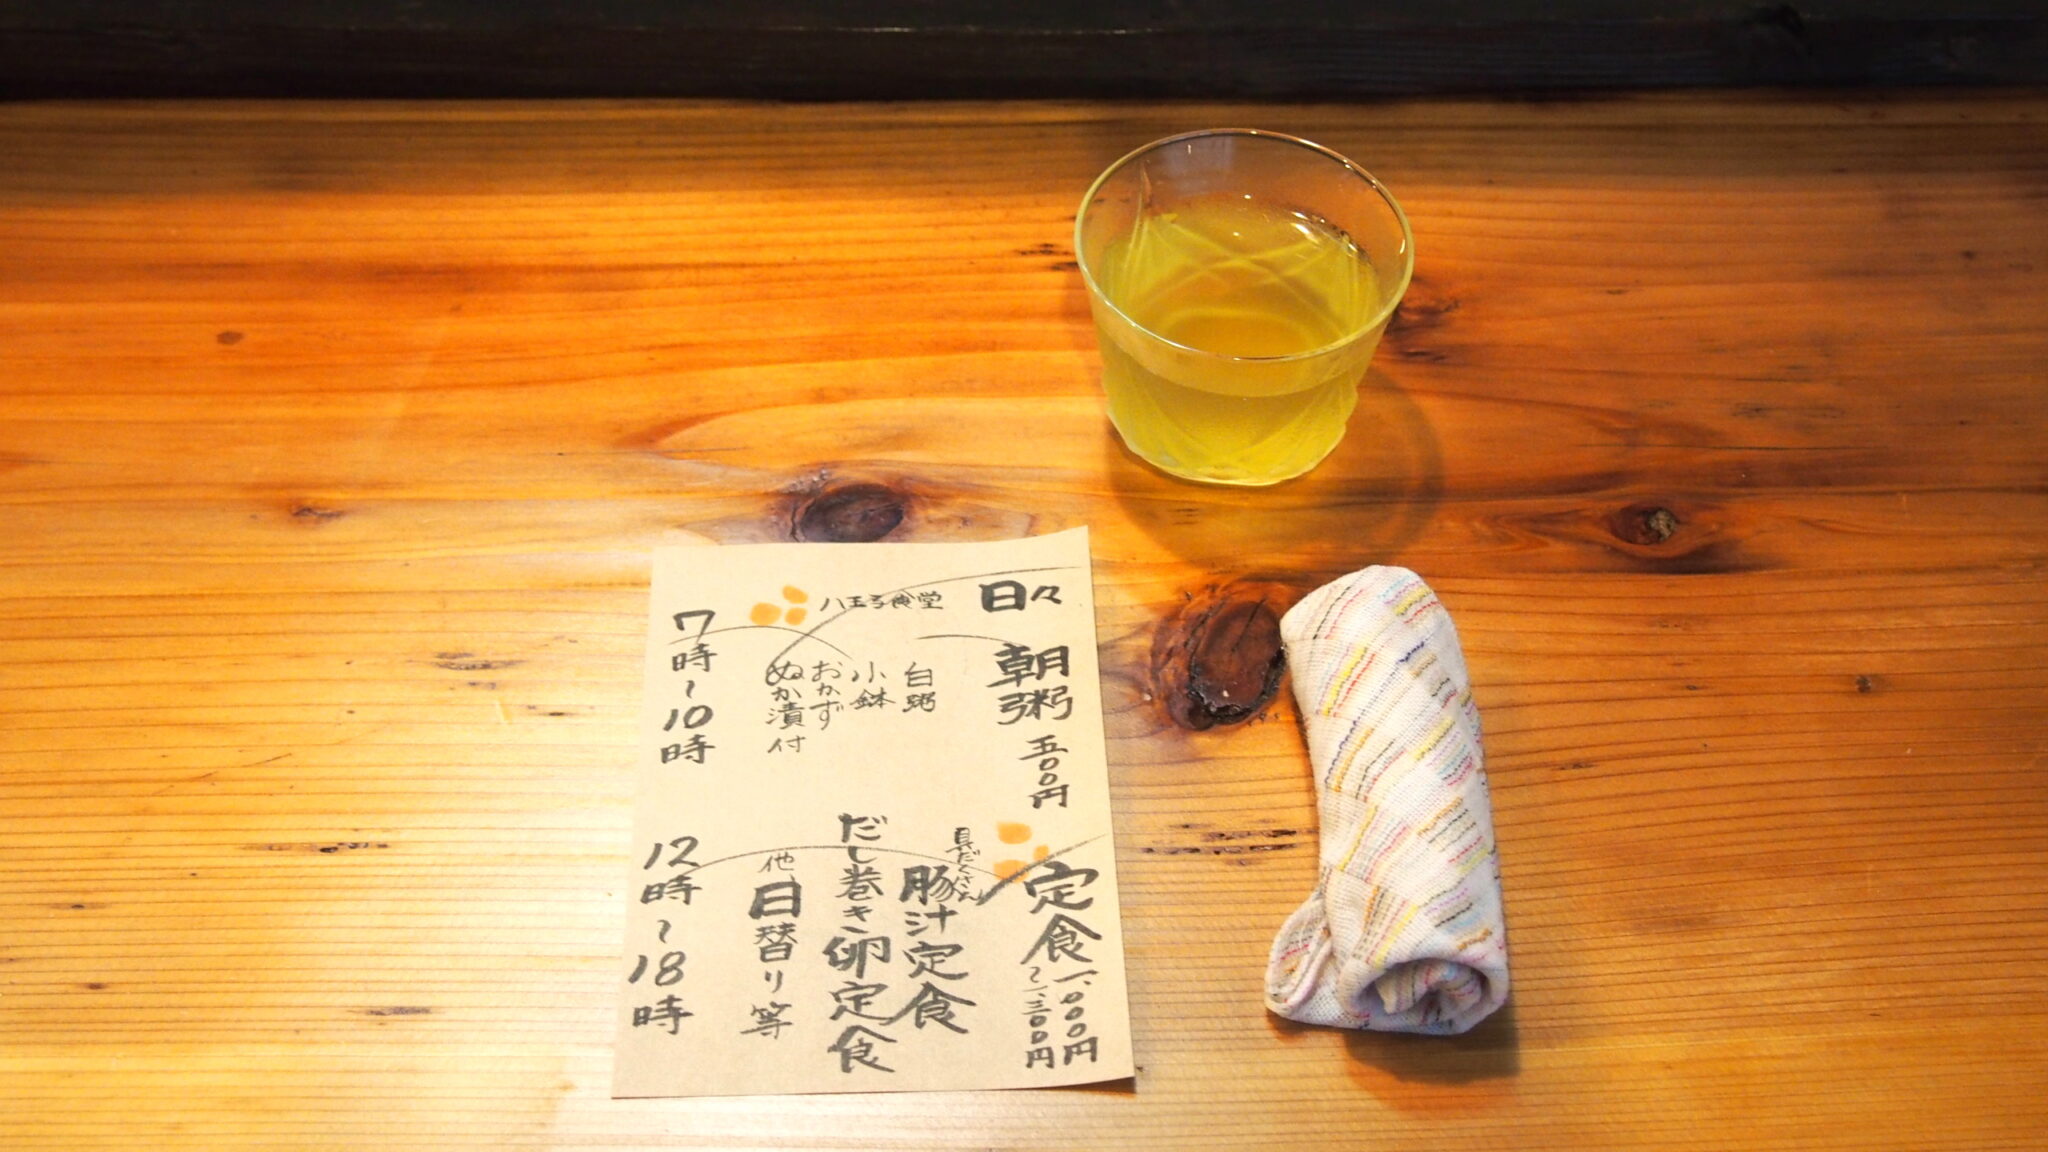 日々
八王子食堂
朝粥 五〇〇円
白粥
小鉢
おかず
ぬか漬付
7時~10時
定食 一、〇〇〇円
~一、三〇〇円
具だくさん
豚汁定食
だし巻き卵定食
他、日替り等
12時~18時